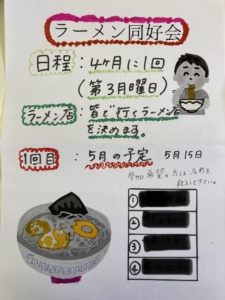 ラーメン同好会
日程：4ヶ月に1回
（第3月曜日）
ラーメン店：皆で行くラーメン店
を決めます。
1回目：5月の予定 5月15日
参加希望の方は名前を
記入して下さい
①
②
③
④